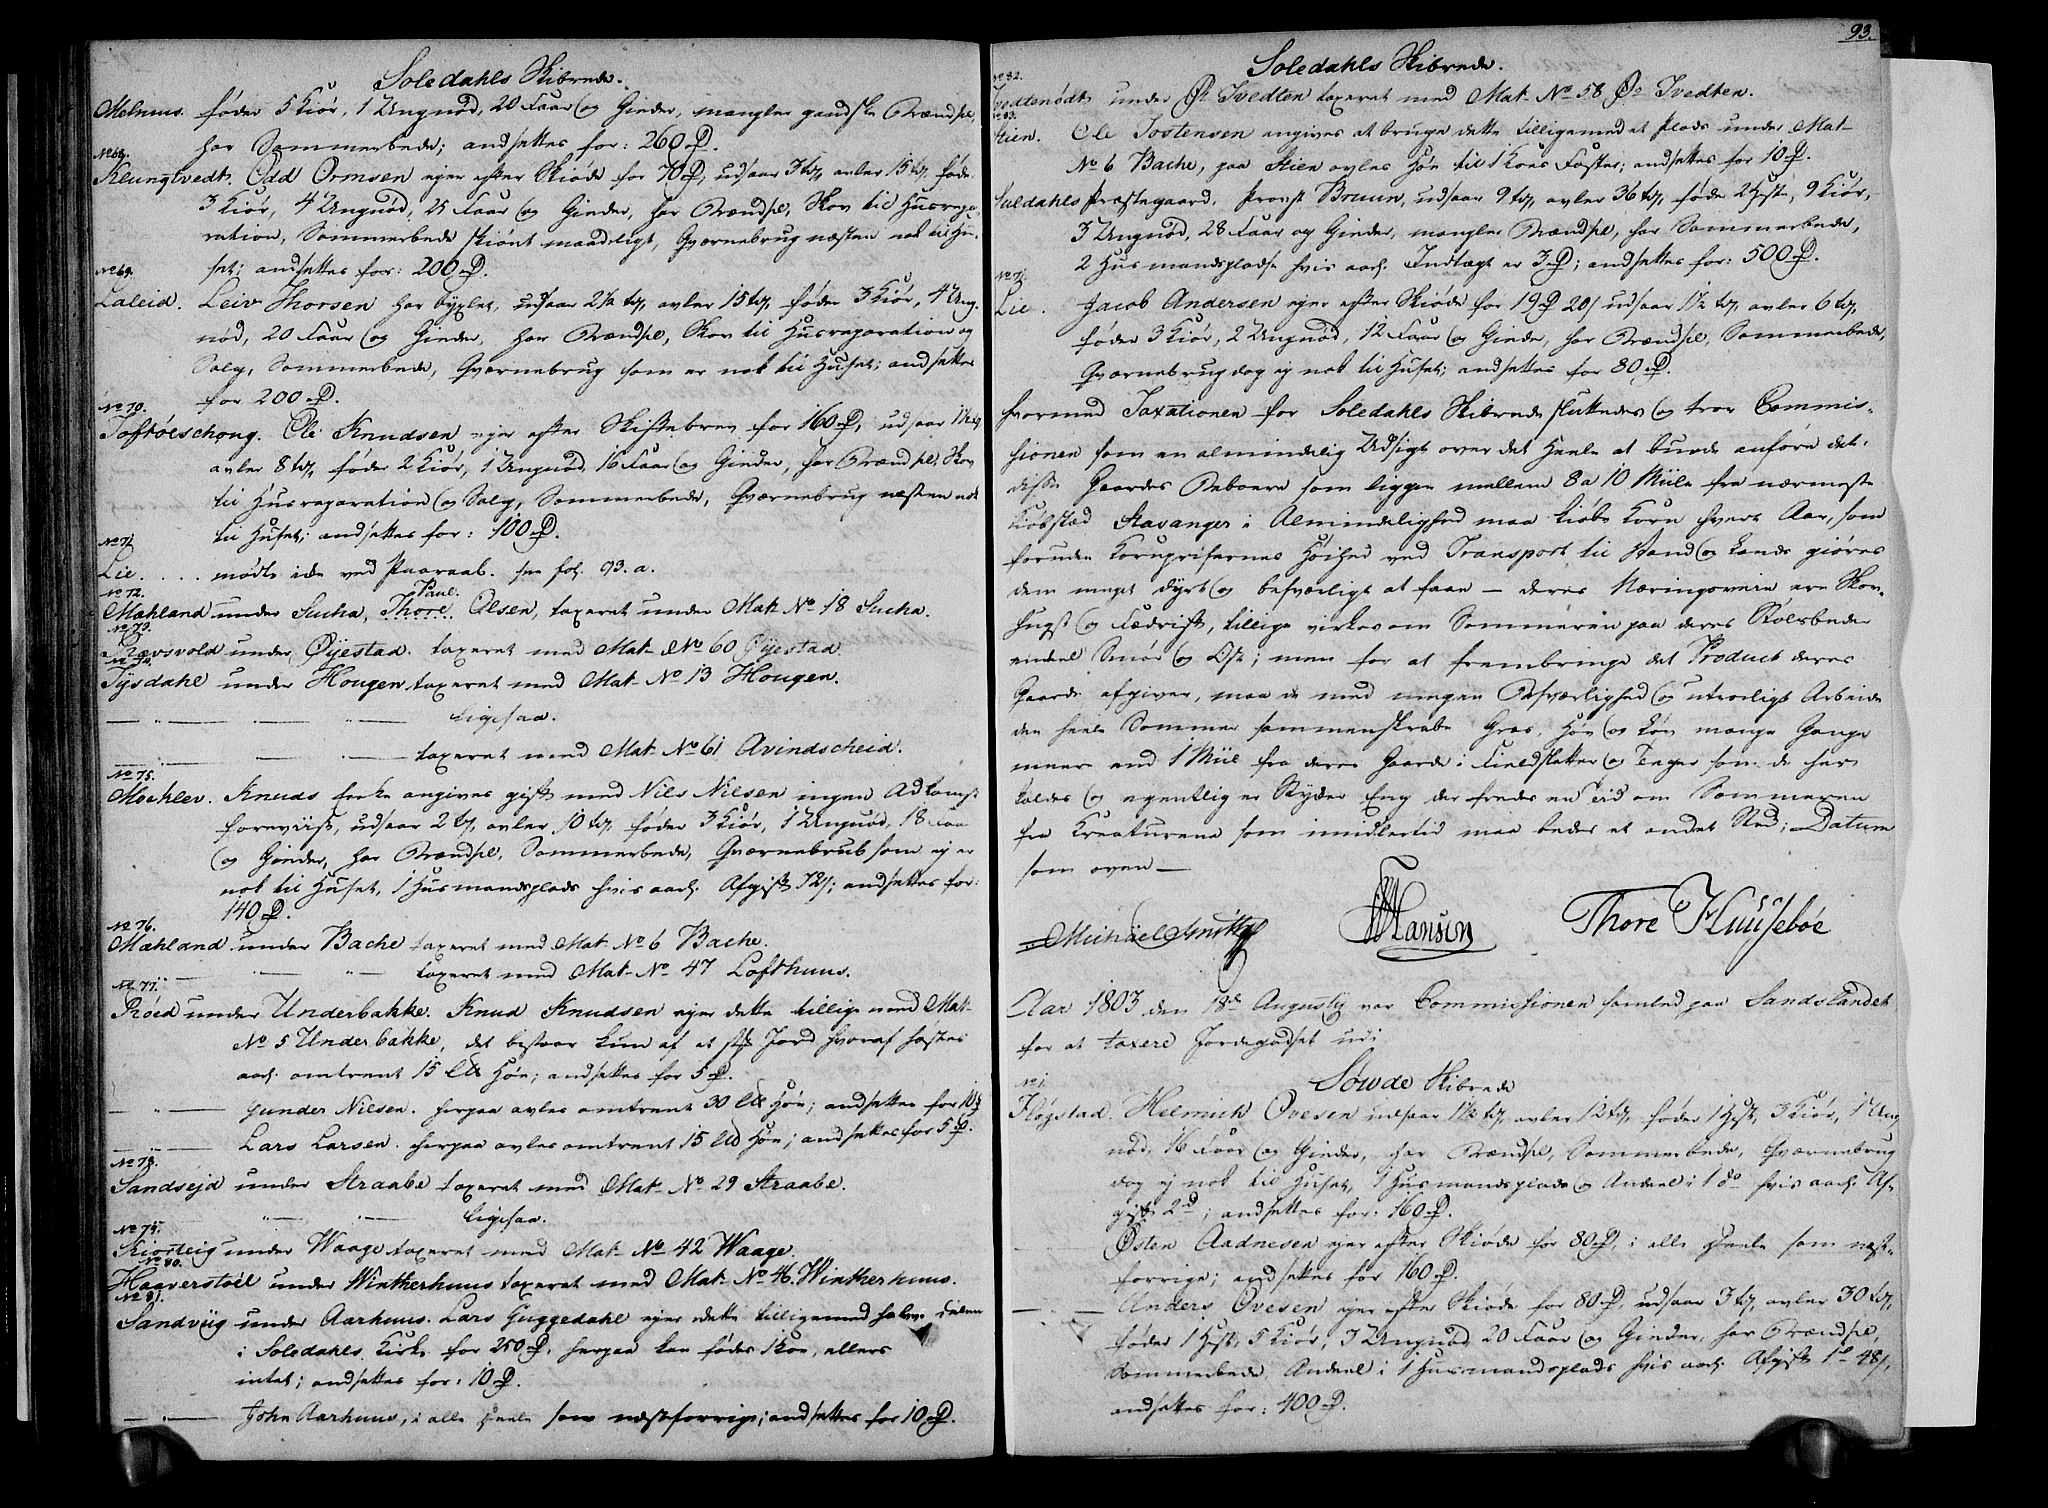 Soledahls Skibrede.
Melhuus. føder 5 Kiør, 1 Ungnød, 20 Faar og Gieder, mangler gandske Brændsel,
har Sommerbede; andsettes for: 260 D.
No 68.
Klungtvedt. Odd Ormsen ejer efter Skiøde for 70 D, udsaar 3 td, avler 15 td, føder
3 Kiør, 4 Ungnød, 25 Faar og Gieder, har Brændsel, Skov til Husrepa-
ration, Sommerbede skiønt maadeligt, Qværnebrug næsten nok til Hu-
set; andsettes for: 200 D.
No 69.
Laleid. Leiv Thorsen har byxlet, udsaar 2 1/2 td, avler 15 td, føder 3 Kiør, 4 Ung-
nød, 20 Faar og Gieder, har Brændsel, Skov til Husreparation og
Salg, Sommerbede, Qværnebrug som er nok til Huset; andsettes
for 200 D.
No 70.
Ole Knudsen ejer efter Skiftebrev for 160 D, udsaar
avler 8 td, føder 2 Kiør, 1 Ungnød, 16 Faar og Gieder, har Brændsel, Skov
til Husreparation og Salg, Sommerbede, Qværnebrug næsten nok
til Huset; andsettes for: 100 D.
No 71
Lie . . . . mødte ikke ved Paaraab. see fol. 93.a.
No 72. Paul.
Mahland under Sucha, Thore Olsen, taxeret under Mat. No 18 Sucha.
No 73.
Rævsvold under Øyestad. taxeret med Mat. No 60 Øyestad
No 74.
Tysdahl under Hougen taxeret med Mat. No 13 Hougen.
— " — — " — ligesaa.
— — — taxeret med Mat. No 61 Avindscheid.
No 75.
Mochlev. Knuds Enke angives gift med Nils Nilsen ingen Adkomst
foreviist, udsaar 2 td, avler 10 td, føder 3 Kiør, 1 Ungnød, 18 Faar
og Gieder, har Brændsel, Sommerbede, Qværnebrub som ej er
nok til Huset, 1 Husmandsplads hvis aarl. Afgift 72 s; andsettes for:
140 D.
No 76.
Mahland under Bache taxeret med Mat. No 6 Bache.
— " — — " — taxeret med Mat. No 47 Lofthuus.
No 77.
Røed under Underbakke. Knud Knudsen ejer dette tillige med Mat.
No 5 Underbakke, det bestaar kun af et stk Jord hvoraf høstes
aarl. omtrent 15 Læs Høe; andsettes for 5 D.
— " — Gunder Nilsen. herpaa avles omtrent 30 Læs Høe; andsettes for 10 D
Lars Larsen. herpaa avles omtrent 15 Læs Høe; andsettes for 5 D.
No 78.
Sandsejd under Straabe taxeret med Mat. No 29 Straabe.
— " — — " — ligesaa.
No 79.
Kiorteig under Waage taxeret med Mat. No 42 Waage.
No 80.
Haaverstøel under Wintherhuus taxeret med Mat. No 46. Wintherhuus.
No 81.
Sandviig under Aarhuus. Lars Guggedahl ejer dette tilligemed halve Delen
i Soledahls Kirke for 250 D, herpaa kan fødes 1 Koe, ellers
intet; andsettes for: 10 D.
— " — John Aarhuus, i alle Deele som næstforrige; andsettes for 10 D.
93.
Soledahls Skibrede.
No 82.
Tvedtenødt under Øv. Tvedten taxeret med Mat. No 58 Øv. Tvedten.
No 83.
Stien. Ole Tostensen angives at bruge dette tilligemed et Plads under Mat.
No 6 Bache, paa Stien avles Høe til 1 Koes Foster; andsettes for 10 D.
Suldahls Præstegaard, Provst Bruun, udsaar 9 td, avler 36 td, føder 2 Heste, 9 Kiør,
3 Ungnød, 28 Faar og Gieder, mangler Brændsel, har Sommerbede,
2 Husmandspladse hvis aarl. Indtægt er 3 D; andsettes for: 500 D.
No 71.
Lie. Jacob Andersen ejer efter Skiøde for 19 D 20 s udsaar 1 1/2 td, avler 6 td,
føder 3 Kiør, 2 Ungnød, 12 Faar og Gieder, har Brændsel, Sommerbede,
Qværnebrug dog ej nok til Huset; andsettes for 80 D.
hvormed Taxationen for Soledahls Skibrede sluttedes og tror Commis-
sionen som en almindelig Udsigt over det Heele at burde anføre det:
disse Gaardes Beboere som ligger mellem 8 a 10 Miile fra nærmeste
Kiøbstæd Stavanger i Almindelighed maa kiøbe Korn hvert Aar, som
foruden Kornprisernes Høihed ved Transport til Vand og Lands giøres
dem meget dyrt og besværligt at faae — deres Næringsveie ere Skov-
hugst og Fædrift, tillige virkes om Sommeren paa deres Stølsbeder
endeel Smør og Ost; men for at frembringe det Product deres
Gaarde afgiver, maa de med megen Besværlighed og utroeligt Arbeide
den heele Sommer sammenskrabe Græs, Høe og Løv mange Gange
meer end 1 Miil fra deres Gaarde i Fieldslætter og Teiger som de her
kaldes og egentlig er Stykker Eng der fredes en Tid om Sommeren
fra Kreaturene som imidlertid maa bedes et andet Sted; Datum
som oven —
Michael Smith Hansen Thore Huusebøe
Aar 1803 den 18de Augustij var Commissionen samled paa Sandslandet
for at taxere Jordegodset udi
Søwde Skibrede
No 1.
Fløgstad. Helmich Ovesen udsaar 1 1/2 td, avler 12 td, føder 1 Hest, 3 Kiør, 1 Ung-
nød, 16 Faar og Gieder, har Brændsel, Sommerbede, Qværnebrug
dog ej nok til Huset, 1 Husmandsplads og Andeel i 1 do hvis aarl. Af-
gift 2 D; andsettes for: 160 D.
Østen Aadnesen ejer efter Skiøde for 80 D, i alle Deele som næst-
forrige; andsettes for 160 D.
— — Anders Ovesen ejer efter Skiøde for 80 D, udsaar 3 td, avler 30 td,
føder 1 Hest, 5 Kiør, 3 Ungnød 20 Faar og Gieder, har Brændsel,
Sommerbede, Andeel i 1 Husmandsplads hvis aarl. Afgift 1 D 48 s,
andsettes for: 400 D.